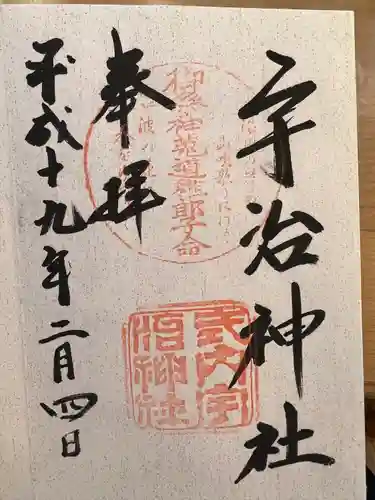 宇治神社
奉拝
平成十九年二月四日
御祭神菟道稚郎子命
式内宇
治神社